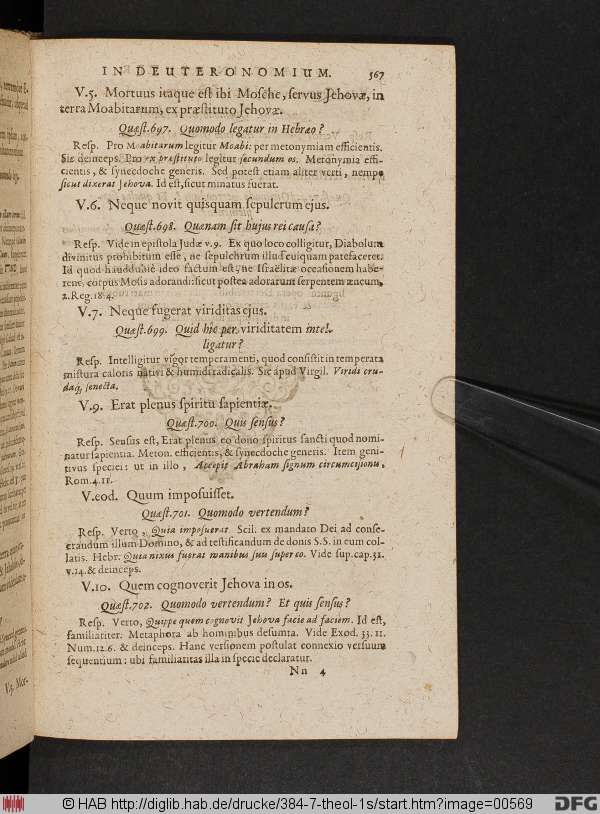 IN DEUTERONOMIUM. 567
V.5. Mortuus itaque est ibi Mosche, servus Jehovæ, in
terra Moabitarum, ex præstituto Jehovæ.
Quæst.697. Quomodo legatur in Hebræo?
Resp. Pro Moabitarum legitur Moabi: per metonymiam efficientis.
Sic deinceps. Pro ex præstituto legitur secundum os. Metonymia effi-
cientis, & synecdoche generis. Sed potest etiam aliter verti, nempe
sicut dixerat Jehova. Id est, sicut minatus fuerat.
V.6. Neque novit quisquam sepulcrum ejus.
Quæst.698. Quænam sit hujus rei causa?
Resp. Vide in epistola Judæ v.9. Ex quo loco colligitur, Diabolum
divinitus prohibitum esse, ne sepulchrum illud cuiquam patefaceret.
Id quod haud dubiè ideo factum est, ne Israëlitæ occasionem habe-
rent, corpus Mosis adorandi: sicut postea adorarunt serpentem æneum,
2.Reg.18.4.
V.7. Neque fugerat viriditas ejus.
Quæst.699. Quid hic per viriditatem intel-
ligatur?
Resp. Intelligitur vigor temperamenti, quod consistit in temperata
mistura caloris nativi & humidi radicalis. Sic apud Virgil. Viridi cru-
daq; senecta.
V.9. Erat plenus spiritu sapientiæ.
Quæst.700. Quis sensus?
Resp. Sensus est, Erat plenus eo dono spiritus sancti quod nomi-
natur sapientia. Meton. efficientis, & synecdoche generis. Item geni-
tivus speciei: ut in illo, Accepit Abraham signum circumcisionis,
Rom.4.11.
V.eod. Quum imposuisset.
Quæst.701. Quomodo vertendum?
Resp. Verto, Quia imposuerat. Scil. ex mandato Dei ad conse-
crandum illum Domino, & ad testificandum de donis S.S. in eum col-
latis. Hebr. Quia nixus fuerat manibus suis super eo. Vide sup.cap.31.
v.14. & deinceps.
V.10. Quem cognoverit Jehova in os.
Quæst.702. Quomodo vertendum? Et quis sensus?
Resp. Verto, Quippe quem cognovit Jehova facie ad faciem. Id est,
familiariter. Metaphora ab hominibus desumta. Vide Exod. 33. 11.
Num.12.6. & deinceps. Hanc versionem postulat connexio versuum
sequentium: ubi familiaritas illa in specie declaratur.
Nn 4
V.5. Mor-
© HAB http://diglib.hab.de/drucke/384-7-theol-1s/start.htm?image=00569
DFG